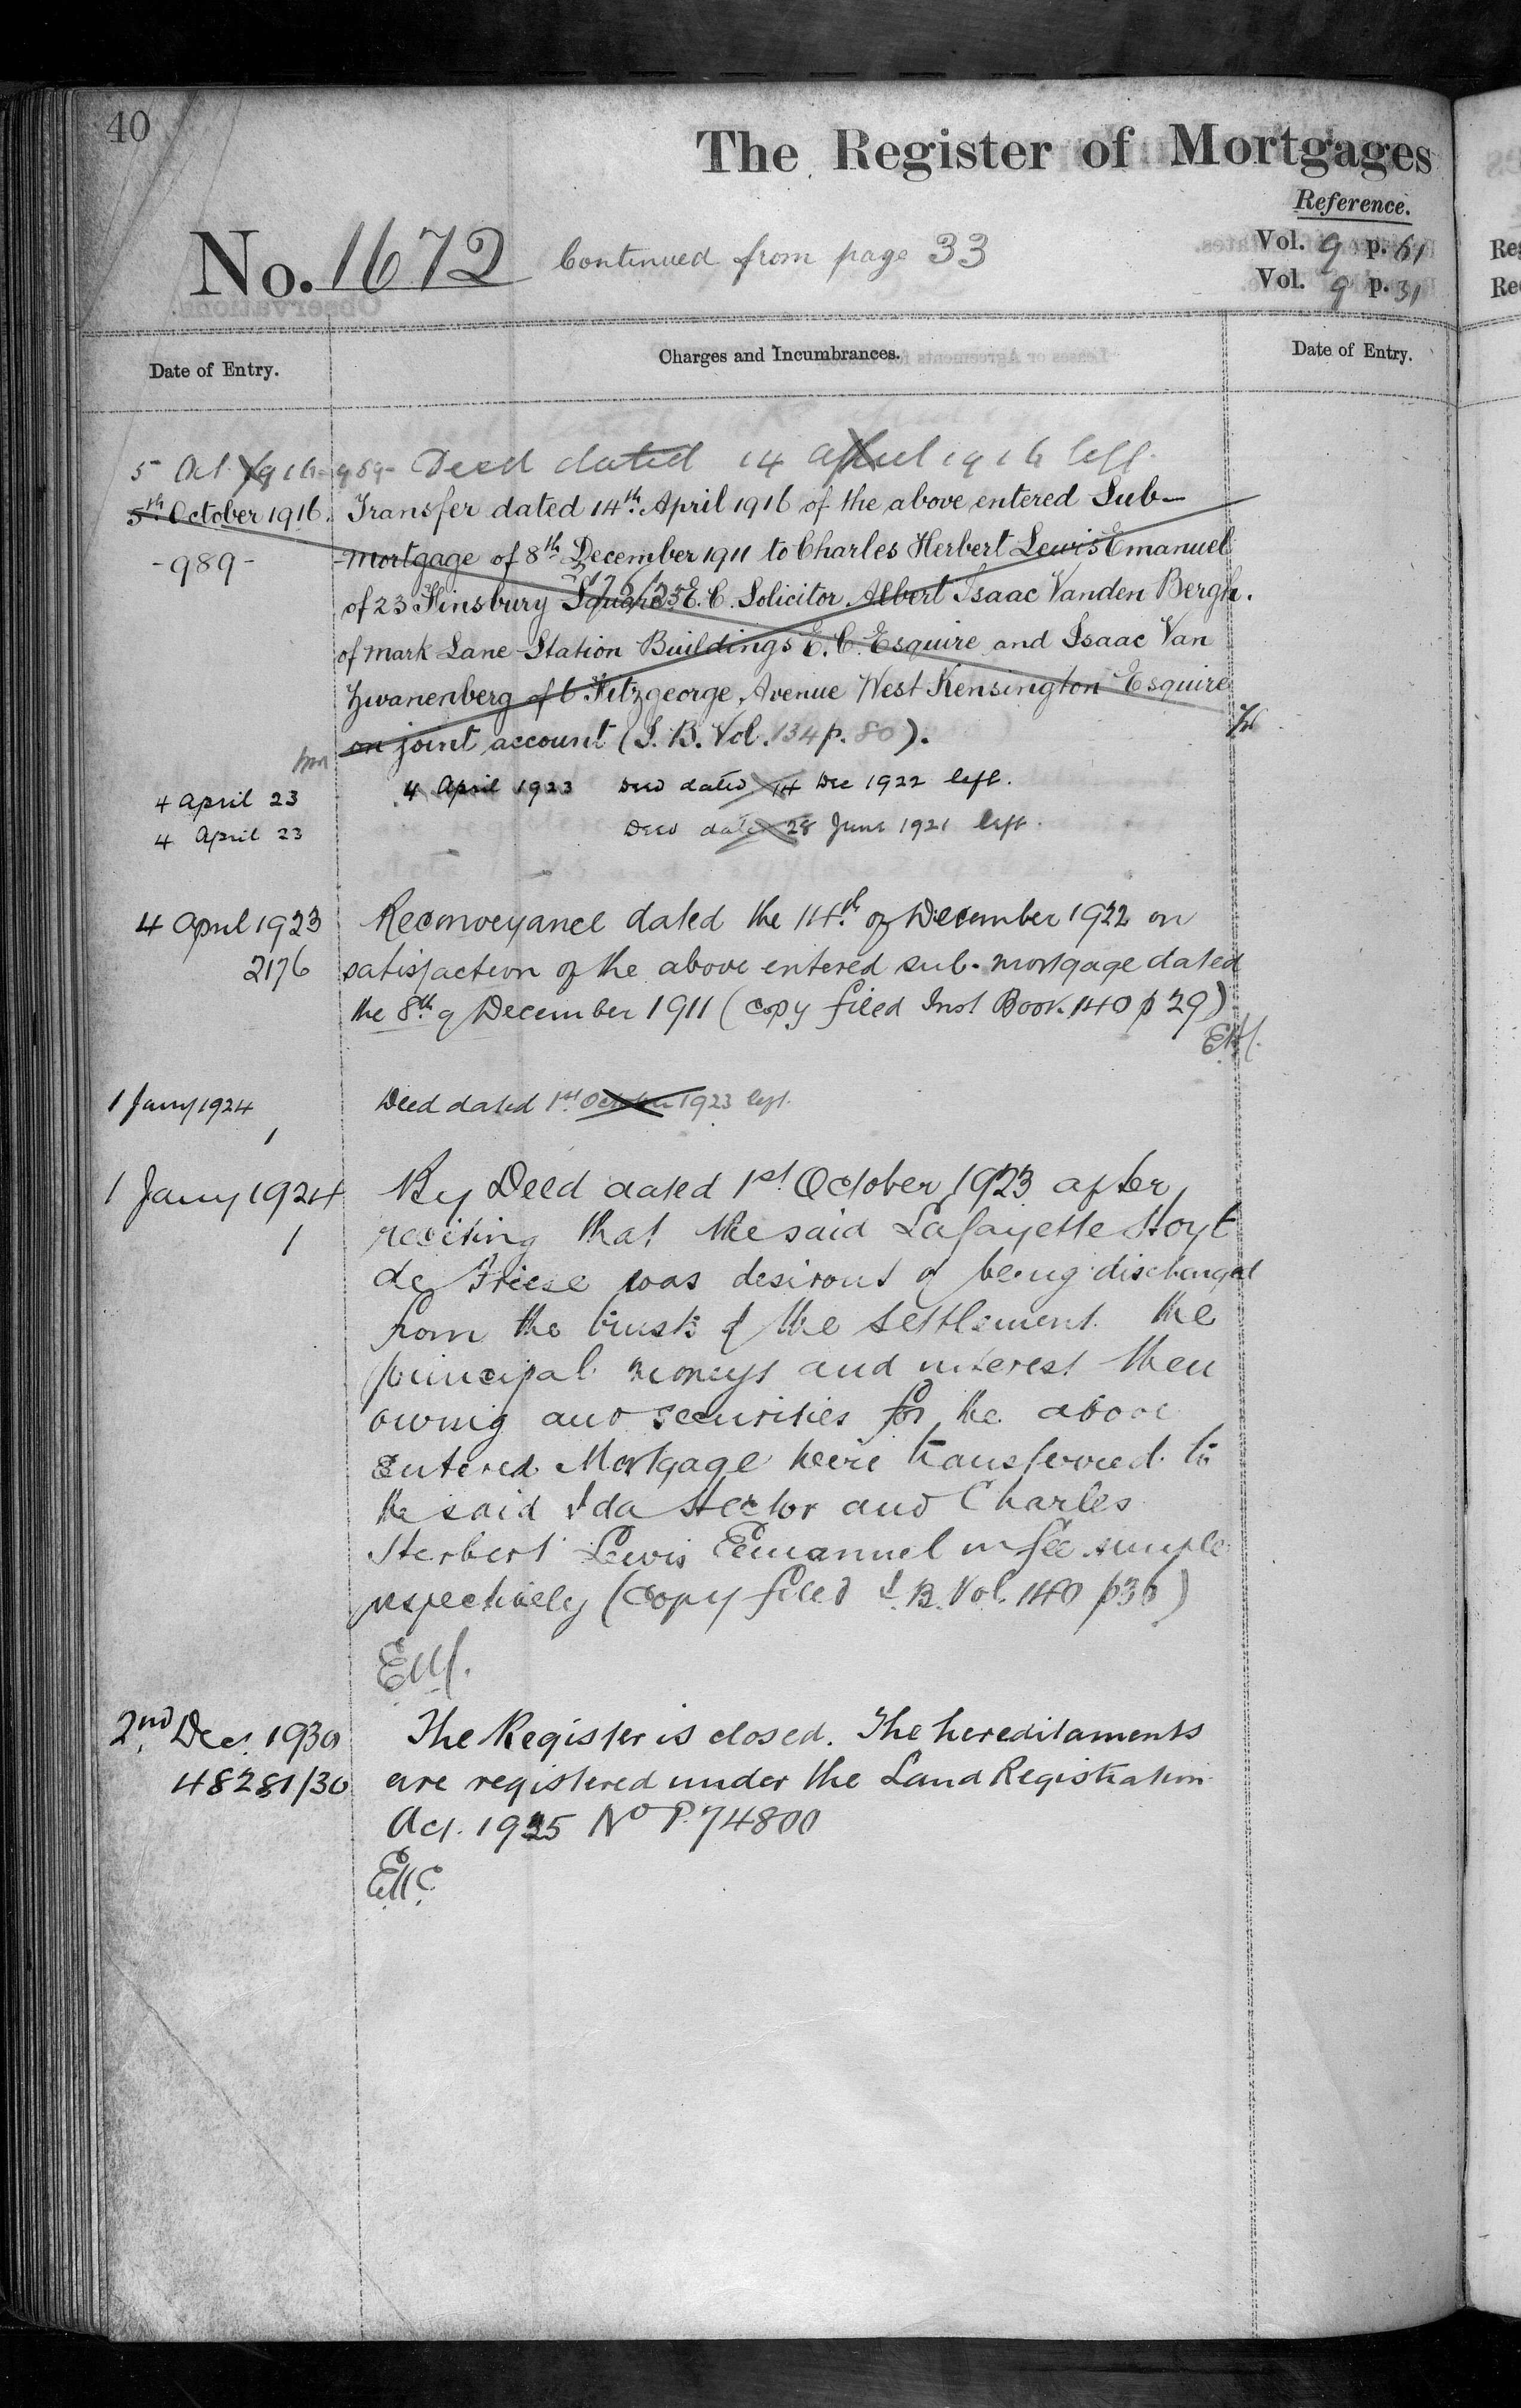 40
The Register of Mortgages
Reference.
No. 1672 Continued from page 33
Vol. 9 p. 61
Vol. 9 p. 31
Date of Entry.
Charges and Incumbrances.
Date of Entry.
5 Oct 1916 - 989 - Deed dated 14 April 1916 left.
5th October 1916. Transfer dated 14th April 1916 of the above entered Sub-
- 989 - mortgage of 8th December 1911 to Charles Herbert Lewis Emanuel
of 23 Finsbury Square E.C. Solicitor Albert Isaac Vanden Bergh.
of Mark Lane Station Buildings E.C. Esquire and Isaac Van
Zwanenberg of 6 Fitzgeorge Avenue West Kensington Esquire
on joint account (I.B. Vol. 134 p. 80).
4 April 23 4 April 1923 Deed dated 14 Dec 1922 left.
4 April 23 Deed dated 28 June 1921 left.
4 April 1923 Reconveyance dated the 14th of December 1922 on
2176 satisfaction of the above entered sub-mortgage dated
the 8th of December 1911 (copy filed Inst Book 140 p 29)
1 Jany 1924 Deed dated 1st October 1923 left.
1
1 Jany 1924 By Deed dated 1st October 1923 after
1 reciting that the said Lafayette Hoyt
de Friese was desirous of being discharged
from the trusts of the settlement the
principal moneys and interest then
owing and securities for the above
entered Mortgage were transferred to
the said Ida Hector and Charles
Herbert Lewis Emanuel in fee simple
respectively (Copy filed I.B. Vol. 140 p36)
2nd Dec. 1930 The Register is closed. The hereditaments
48281/30 are registered under the Land Registration
Act. 1925 No P.74800